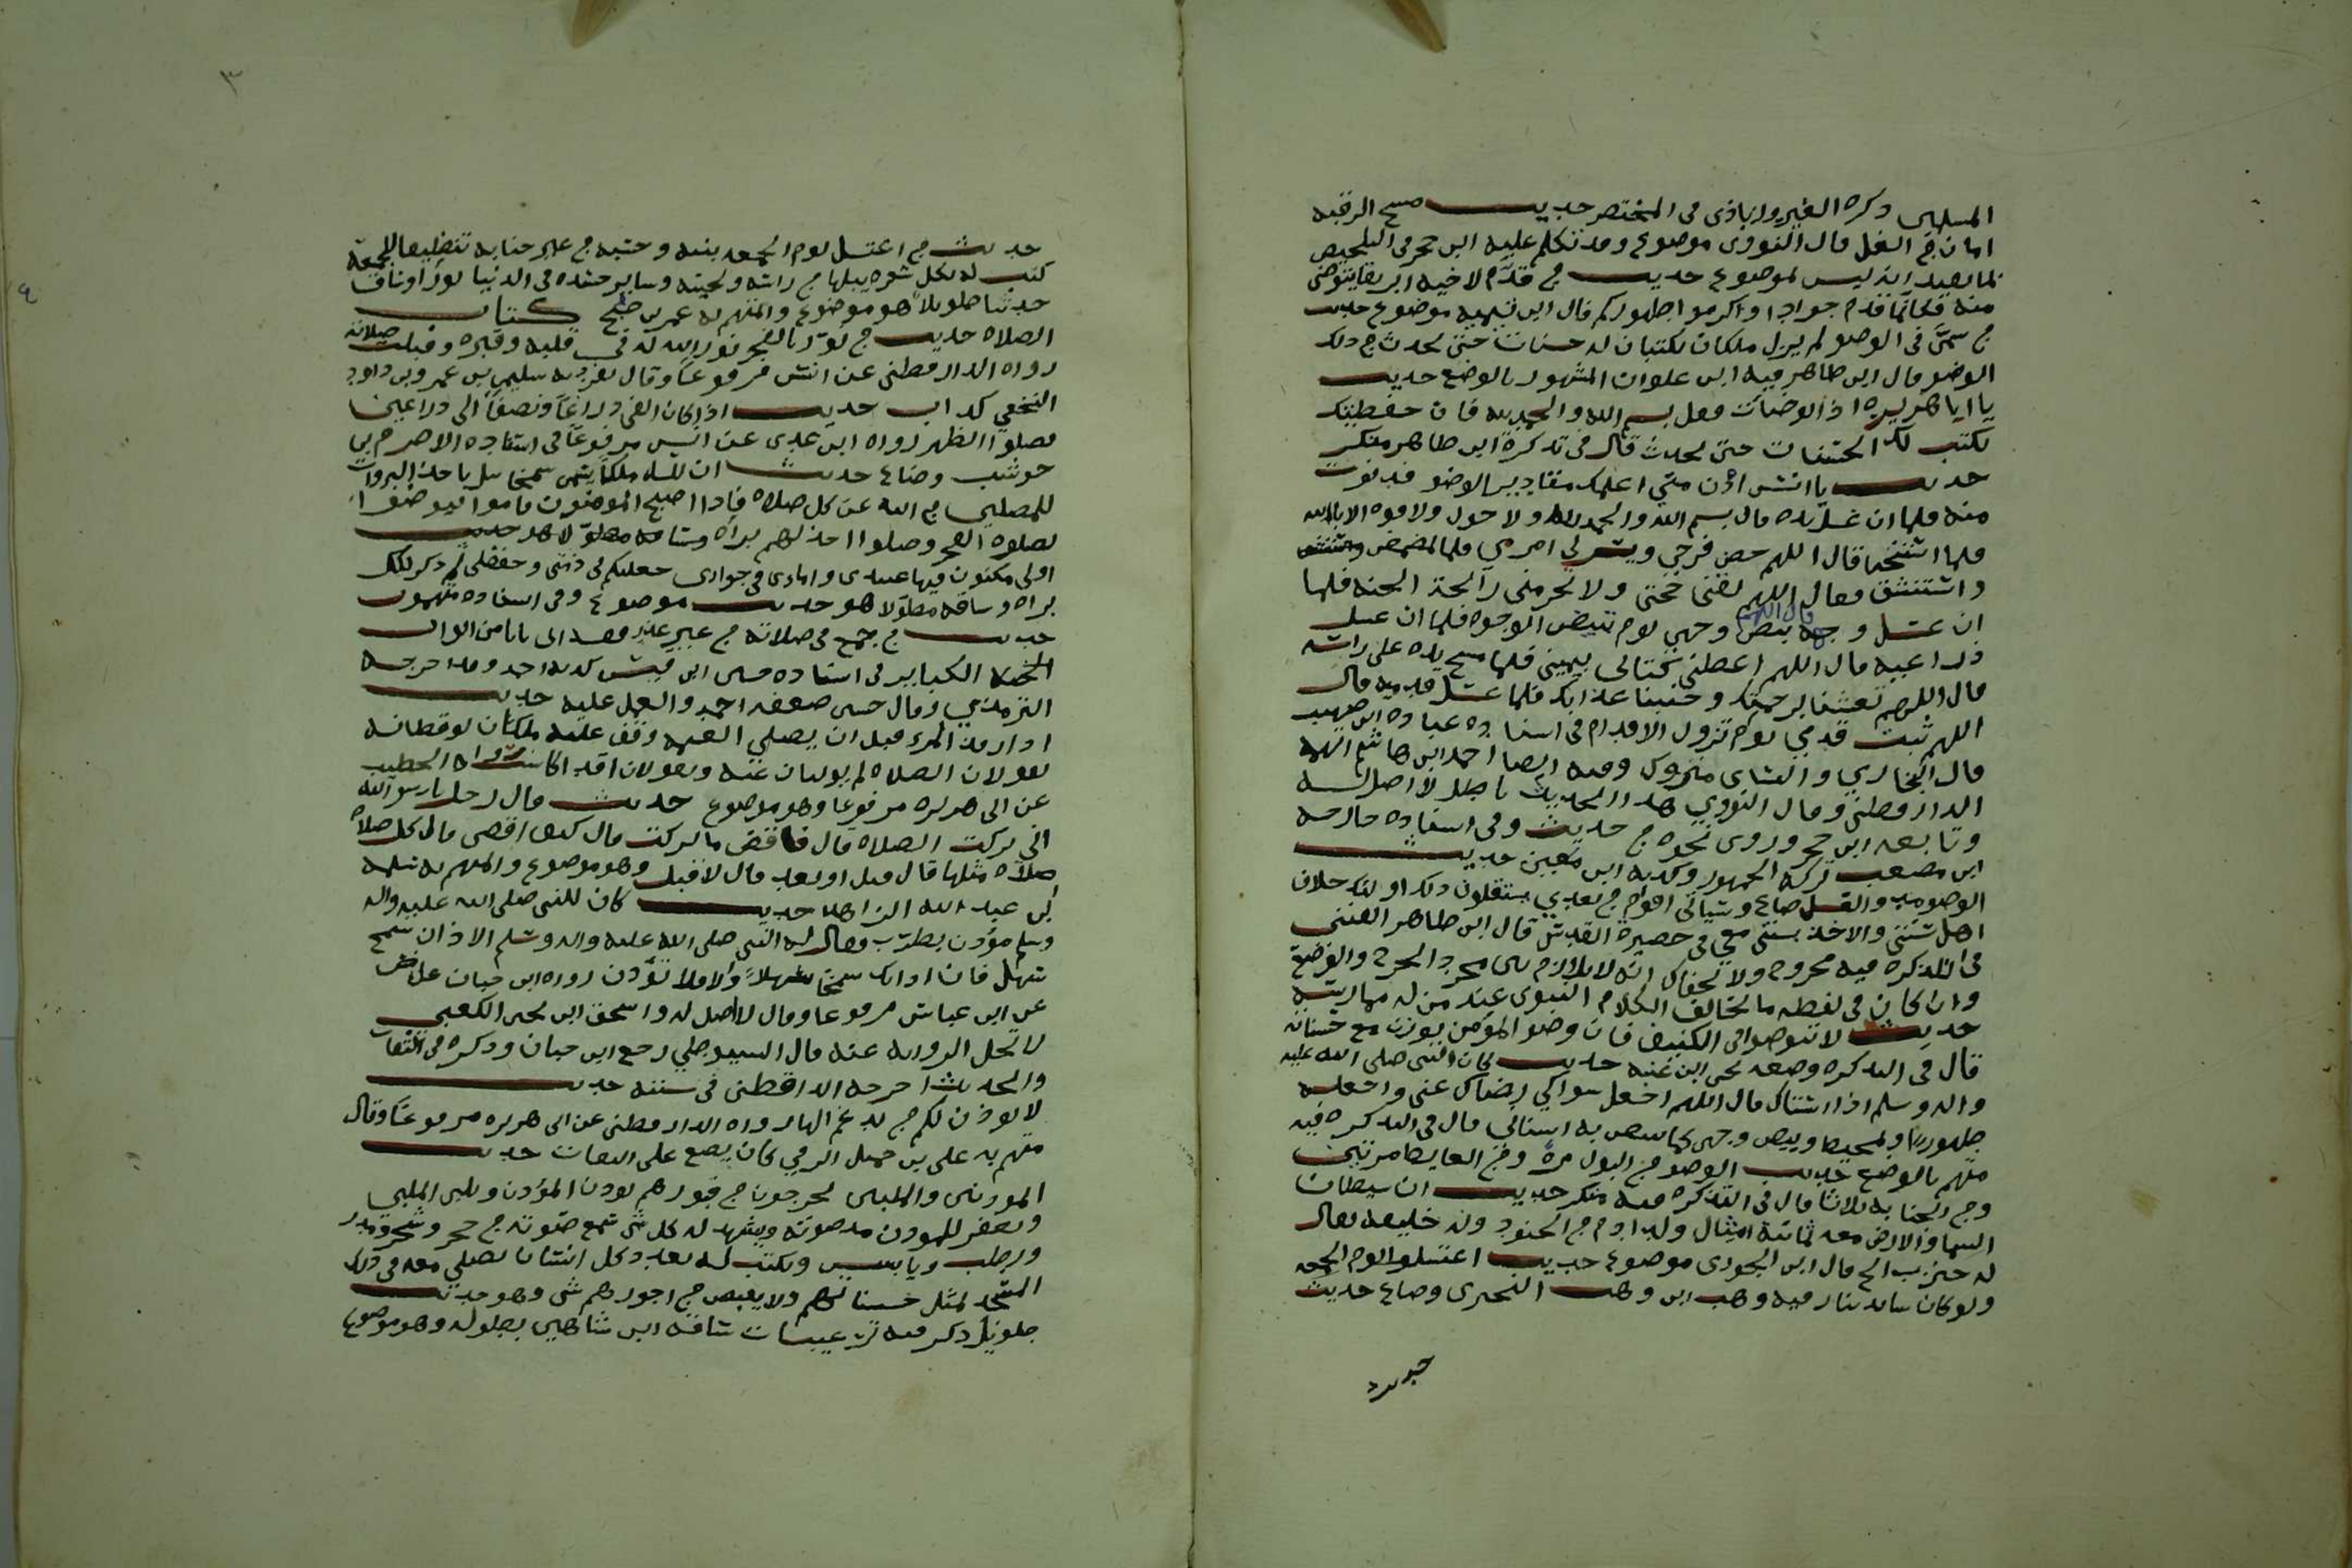 المسلمين ذكره الفيروزاباذى فى المختصر حديث مسح الرقبه
امان من الغل قال النووى موضوع وقد تكلم عليه ابن حجر فى التلخيص
بما يفيد انه ليس لموضوع حديث من قدم لاخيه ابريقا يتوضى
منه فكانما قدم جوادا واكرموا طهوركم قال ابن تيميه موضوع حديث
من سمى فى الوضو لم يزل ملكان يكتبان له حسنات حتى يحدث من ذلك
الوضو قال ابن طاهر فيه ابن علوان المشهور بالوضع حديث
يا ابا هريره اذا توضات فقل بسم الله والحمد لله فان حفظتك
تكتب لك الحسنات حتى تحدث قال فى تذكرة ابن طاهر منكر
حديث يا انس ادن منى اعلمك مقادير الوضو فدنوت
منه فلما ان غسل يده قال بسم الله والحمد لله ولا حول ولا قوه الا بالله
فلما استنجا قال اللهم حصن فرجي ويسر لي امري فلما تمضمض واستنشق
واستنشق فقال اللهم لقنى حجتى ولا تحرمنى رائحة الجنه فلما
ان غسل وجهه قال اللهم بيض وجهى يوم تبيض الوجوه فلما ان غسل
ذراعيه قال اللهم اعطنى كتابى بيمينى فلما مسح يده على راسه
قال اللهم تغشنا برحمتك وجنبنا عذابك فلما غسل قدميه قال
اللهم ثبت قدمي يوم تزول الاقدام فى اسناده عباده ابن صهيب
قال البخاري والنساى متروك وفيه ايضا احمد ابن هاشم اتهمه
الدارقطنى وقال النووي هذا الحديث باطل لا اصل له
وتابعه ابن حجر وروى نحوه من حديث وفى اسناده خارجه
ابن مصعب تركه الجمهور وكذبه ابن معين حديث
الوضو مد والغسل صاع وسياتى اقوام من بعدي يستقلون ذلك اولئك خلاف
اهل سنتى والاخذ بسنتى معي فى حضيرة القدس قال ابن طاهر
فى التذكره فيه مجروح ولا يخفاك انه لا يلازم بين مجرد الجرح والوضع
وان كان فى لفظه ما يخالف الكلام النبوى عند من له ممارسه
حديث لا تتوضوا فى الكنيف فان وضو المؤمن يوزن مع حسناته
قال فى التذكره وضعه يحى ابن عنبه حديث كان النبى صلى الله عليه
واله وسلم اذا استاك قال اللهم اجعل سواكي رضاك عنى واجعله
طهورا وتمحيصا وبيض وجهى كما تبيض به اسنانى قال فى التذكره فيه
متهم بالوضع حديث الوضو من البول مرة ومن الغايط مرتين
ومن الجنابه ثلاثا قال فى التذكره فيه منكر حديث ان شيطانا
السما والارض معه ثمانية امثال ولد ادم من الجنود وله خليفه يقال
له خنزب الخ قال ابن الجوزى موضوع حديث اغتسلوا يوم الجمعه
ولو كاسا بدينار فيه وهب ابن وهب البخترى وضاع حديث
حديث
٣
حديث من اغتسل يوم الجمعه بنيه وحسبه من غير جنابه تنظيفا للجمعة
كتب له بكل شعره يبلها من راسه ولحيته وساير جسده فى الدنيا نورا وساق
حديثا طويلا هو موضوع والمتهم به عمر بن صبح كتاب
الصلاه حديث من نور بالفجر نور الله له فى قلبه وقبره وقبلت صلاته
رواه الدارقطنى عن انس مرفوعا وقال تفرد به سليمن بن عمرو بن داود
النخعي كذاب حديث اذا كان الفى ذراعا ونصفا الى ذراعين
فصلوا الظهر رواه ابن عدى عن انس مرفوعا فى اسناده الاصرم بن
حوشب وضاع حديث ان لله ملكا يسمى سمخائيل ياخذ البروات
للمصلين من الله عن كل صلاه فاذا اصبح المومنون قاموا ليوضوا
لصلوه الفجر وصلوا اخذ لهم براه وساقه مطولا هو حديث
اولى مكتوب فيها عبيدى وامادى فى جوارى جعلتكم فى ذمتى وحفظى ثم ذكر لكل
براه وساقه مطولا هو حديث موضوع وفى اسناده متهمون
حديث من جمع فى صلاته من غير عذر فقد اتى بابا من ابواب
الكبا ير فى اسناده حسين ابن قيس كذبه احمد وقد اخرجه
الترمذي وقال حسن ضعفه احمد والعمل عليه حديث
اذا رقد المرء قبل ان يصلى العتمه وقف عليه ملكان يوقظانه
يقولان الصلاه ثم يوليان عنه ويقولان رقد الخاسر رواه الخطيب
عن ابى هريره مرفوعا وهو موضوع حديث قال رجل يا رسول الله
انى تركت الصلاه قال فاقض ما تركت قال كيف اقضى قال كل صلاه
صلاه مثلها قال قبل او بعد قال لا قبل وهو موضوع والمتهم به سلمه
ابن عبد الله الزاهد حديث كان للنبى صلى الله عليه واله
وسلم مؤذن يطرب فقال له النبى صلى الله عليه واله وسلم الاذان سمح
سهل فان كان اذانك سمحا سهلا والا فلا تؤذن رواه ابن حبان
عن ابن عباس مرفوعا وقال لا اصل له واسحق ابن يحى الكعبى
لا تحل الروايه عنه قال السيوطي رجع ابن حبان وذكره فى الثقات
والحديث اخرجه الداقطنى فى سننه حديث
لا يوذن لكم من يدغم الها رواه الدارقطنى عن ابى هريره مرفوعا وقال
متهم به على بن جميل الرقي كان يضع على الثقات حديث
الموذنين والملبين يخرجون من قبورهم يوذن المؤذن ويلبى الملبي
ويغفر للموذن مد صوته ويشهد له كل شى سمع صوته من حجر وشجر ومدر
ورطب ويابس ويكتب له بعدد كل انسان يصلي معه فى ذلك
المسجد بمثل حسناتهم ولا ينقص من اجورهم شى وهو حديث
طويل ذكر فيه ترغيبات ساقه ابن شاهين بطوله وهو موضوع